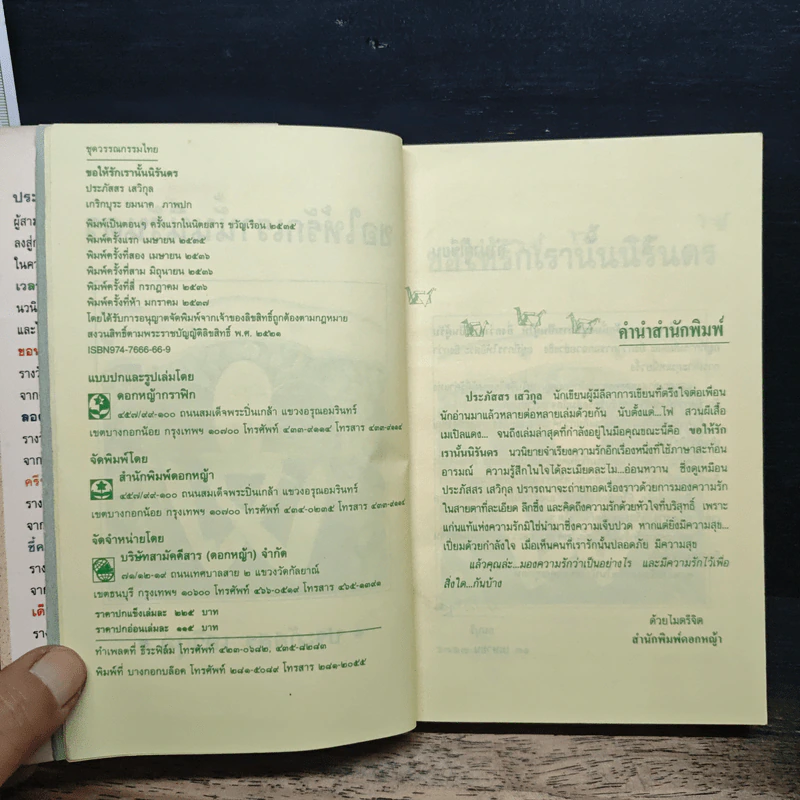 ชุดวรรณกรรมไทย
ขอให้รักเรานั้นนิรันดร
ประภัสสร เสวิกุล
เกริกบุระ ยมนาค ภาพปก
พิมพ์เป็นตอนๆ ครั้งแรกในนิตยสาร ขวัญเรือน ๒๕๓๕
พิมพ์ครั้งแรก เมษายน ๒๕๓๕
พิมพ์ครั้งที่สอง เมษายน ๒๕๓๖
พิมพ์ครั้งที่สาม มิถุนายน ๒๕๓๖
พิมพ์ครั้งที่สี่ กรกฎาคม ๒๕๓๖
พิมพ์ครั้งที่ห้า มกราคม ๒๕๓๗
โดยได้รับการอนุญาตจัดพิมพ์จากเจ้าของลิขสิทธิ์ถูกต้องตามกฎหมาย
สงวนสิทธิ์ตามพระราชบัญญัติลิขสิทธิ์ พ.ศ. ๒๕๒๑
ISBN974-7666-66-9
แบบปกและรูปเล่มโดย
ดอกหญ้ากราฟิก
๔๕๗/๙๙-๑๐๐ ถนนสมเด็จพระปิ่นเกล้า แขวงอรุณอมรินทร์
เขตบางกอกน้อย กรุงเทพฯ ๑๐๗๐๐ โทรศัพท์ ๔๓๓-๙๑๑๔ โทรสาร ๔๓๓-๙๑๑๔
จัดพิมพ์โดย
สำนักพิมพ์ดอกหญ้า
๔๕๗/๙๙-๑๐๐ ถนนสมเด็จพระปิ่นเกล้า แขวงอรุณอมรินทร์
เขตบางกอกน้อย กรุงเทพฯ ๑๐๗๐๐ โทรศัพท์ ๔๓๔-๐๒๓๕ โทรสาร ๔๓๓-๙๑๑๔
จัดจำหน่ายโดย
บริษัทสามัคคีสาร (ดอกหญ้า) จำกัด
๗๑/๑๒-๑๙ ถนนเทศบาลสาย ๒ แขวงวัดกัลยาณ์
เขตธนบุรี กรุงเทพฯ ๑๐๖๐๐ โทรศัพท์ ๔๖๖-๐๕๑๙ โทรสาร ๔๖๕-๑๓๙๑
ราคาปกแข็งเล่มละ ๒๒๕ บาท
ราคาปกอ่อนเล่มละ ๑๑๕ บาท
ทำเพลตที่ ธีระฟิล์ม โทรศัพท์ ๔๒๓-๐๖๘๒, ๔๓๕-๘๒๘๓
พิมพ์ที่ บางกอกบล็อค โทรศัพท์ ๒๘๑-๕๐๘๙ โทรสาร ๒๘๑-๒๐๕๕
คำนำสำนักพิมพ์
ประภัสสร เสวิกุล นักเขียนผู้มีลีลาการเขียนที่ตรึงใจต่อเพื่อน
นักอ่านมาแล้วหลายต่อหลายเล่มด้วยกัน นับตั้งแต่...ไฟ สวนผีเสื้อ
เมเปิลแดง... จนถึงเล่มล่าสุดที่กำลังอยู่ในมือคุณขณะนี้คือ ขอให้รัก
เรานั้นนิรันดร นวนิยายจำเรียงความรักอีกเรื่องหนึ่งที่ใช้ภาษาสะท้อน
อารมณ์ ความรู้สึกในใจได้ละเมียดละไม...อ่อนหวาน ซึ่งดูเหมือน
ประภัสสร เสวิกุล ปรารถนาจะถ่ายทอดเรื่องราวด้วยการมองความรัก
ในสายตาที่ละเอียด ลึกซึ้ง และคิดถึงความรักด้วยหัวใจที่บริสุทธิ์ เพราะ
แก่นแท้แห่งความรักมิใช่นำมาซึ่งความเจ็บปวด หากแต่ยิ่งมีความสุข...
เปี่ยมด้วยกำลังใจ เมื่อเห็นคนที่เรารักนั้นปลอดภัย มีความสุข
แล้วคุณล่ะ...มองความรักว่าเป็นอย่างไร และมีความรักไว้เพื่อ
สิ่งใด...กันบ้าง
ด้วยไมตรีจิต
สำนักพิมพ์ดอกหญ้า